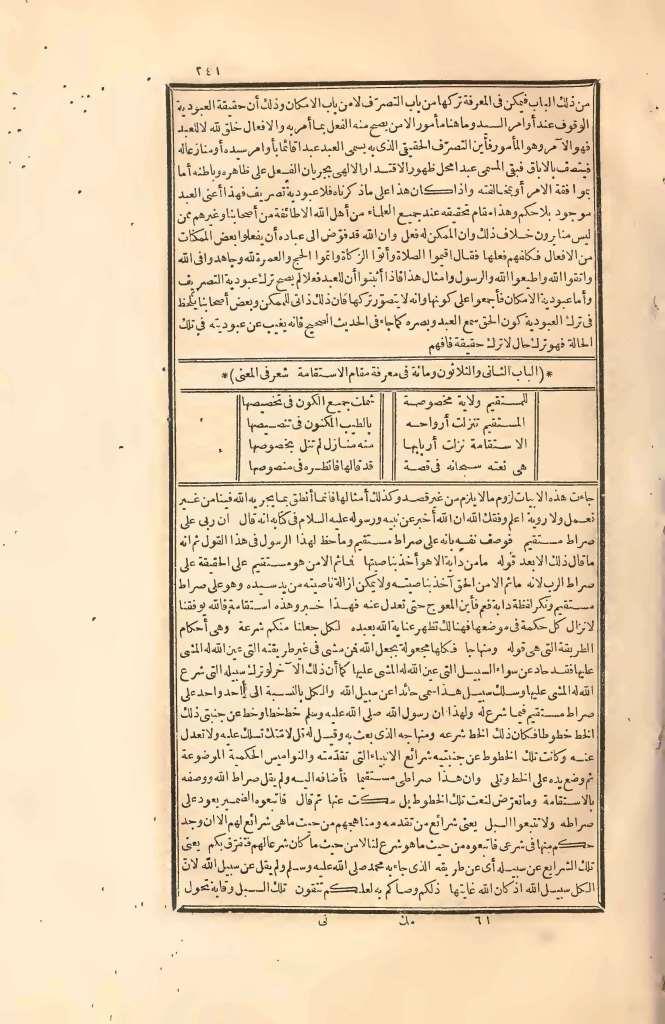 ٢٤١
من ذلك الباب فيمكن في المعرفة تركها من باب التصرف لا من باب الامكان وذلك أن حقيقة العبودية
الوقوف عند أوامر السيد وما هنا مأمور الا من يصح منه الفعل بما أمر به والافعال خلق لله لا للعبد
فهو الآمر وهو المأمور فأين التصرف الحقيقي الذي به يسمى العبد عبدا قائما بأوامر سيده أو منازعا له
فيتصف بالاباق فبقي المسمى عبدا محل ظهور الاقتدار الالهي بجريان الفعل على ظاهره وباطنه أما
بموافقة الامر أو بمخالفته واذا كان هذا على ما ذكرناه فلا عبودية تصريف فهذا أعنى العبد
موجود بلا حكم وهذا مقام تحقيقه عند جميع العلماء من أهل الله الا طائفة من أصحابنا وغيرهم ممن
ليس منا يرون خلاف ذلك وان الممكن له فعل وان الله قد فوض الى عباده أن يفعلوا بعض الممكنات
من الافعال فكلفهم فعلها فقال اقيموا الصلاة وآتوا الزكاة واتموا الحج والعمرة لله وجاهدوا في الله
واتقوا الله واطيعوا الله والرسول وامثال هذا فاذا أثبتوا أن للعبد فعلا لم يصح ترك عبودية التصريف
وأما عبودية الامكان فأجمعوا على كونها وانه لا يتصور تركها فان ذلك ذاتي للممكن وبعض أصحابنا يلحظ
في ترك العبودية كون الحق سمع العبد وبصره كما جاء في الحديث الصحيح فانه يغيب عن عبوديته في تلك
الحالة فهو ترك حال لا ترك حقيقة فافهم
*(الباب الثاني والثلاثون ومائة في معرفة مقام الاستقامة شعر في المعنى)*
للمستقيم ولاية مخصوصة شملت جميع الكون في تخصيصها
المستقيم تنزلت أرواحه بالطيب المكنون في تنصيصها
الاستقامة نزلت أربابها منه منازل لم تنل بخصوصها
هي نعته سبحانه في قصة قد قالها فانظره في منصوصها
جاءت هذه الابيات لزوم ما لا يلزم من غير قصد وكذلك أمثالها فانما أنطق بما يجريه الله فينا من غير
تعمل ولا روية اعلم وفقك الله ان الله أخبر عن نبيه ورسوله عليه السلام في كتابه انه قال ان ربي على
صراط مستقيم فوصف نفسه بانه على صراط مستقيم وما خطأ لهذا الرسول في هذا القول ثم انه
ما قال ذلك الا بعد قوله ما من دابة الا هو آخذ بناصيتها فما ثم الا من هو مستقيم على الحقيقة على
صراط الرب لانه ما ثم الا من الحق آخذ بناصيته ولا يمكن ازالة ناصيته من يد سيده وهو على صراط
مستقيم ونكر لفظة دابة فعم فأين المعوج حتى تعدل عنه فهذا خبر وهذه استقامة فالله يوفقنا
لانزال كل حكمة في موضعها فهنالك تظهر عناية الله بعبده لكل جعلنا منكم شرعة وهي أحكام
الطريقة التي هي قوله ومنهاجا فكلها مجعولة بجعل الله فمن مشى في غير طريقته التي عين الله له المشي
عليها فقد حاد عن سواء السبيل التي عين الله له المشي عليها كما أن ذلك الآخر لو ترك سبيله التي شرع
الله له المشي عليها وسلك سبيل هذا سمى حائدا عن سبيل الله والكل بالنسبة الى واحد واحد على
صراط مستقيم فيما شرع له ولهذا ان رسول الله صلى الله عليه وسلم خط خطا وخط عن جنبتي ذلك
الخط خطوطا فكان ذلك الخط شرعه ومنهاجه الذي بعث به وقيل له قل لامتك تسلك عليه ولا تعدل
عنه وكانت تلك الخطوط عن جنبتيه شرائع الانبياء التي تقدمته والنواميس الحكمية الموضوعة
ثم وضع يده على الخط وتلى وان هذا صراطي مستقيما فأضافه اليه ولم يقل صراط الله ووصفه
بالاستقامة وما تعرض لنعت تلك الخطوط بل سكت عنها ثم قال فاتبعوه الضمير يعود على
صراطه ولا تتبعوا السبل يعنى شرائع من تقدمه ومناهجهم من حيث ما هي شرائع لهم الا ان وجد
حكم منها في شرعي فاتبعوه من حيث ما هو شرع لنا لا من حيث ما كان شرعا لهم فتفرق بكم يعنى
تلك الشرايع عن سبيله أي عن طريقه الذي جاء به محمد صلى الله عليه وسلم ولم يقل عن سبيل الله لان
الكل سبيل الله اذ كان الله غايتها ذلكم وصاكم به لعلكم تتقون تلك السبل وقاية تحول
٦١ مك نى